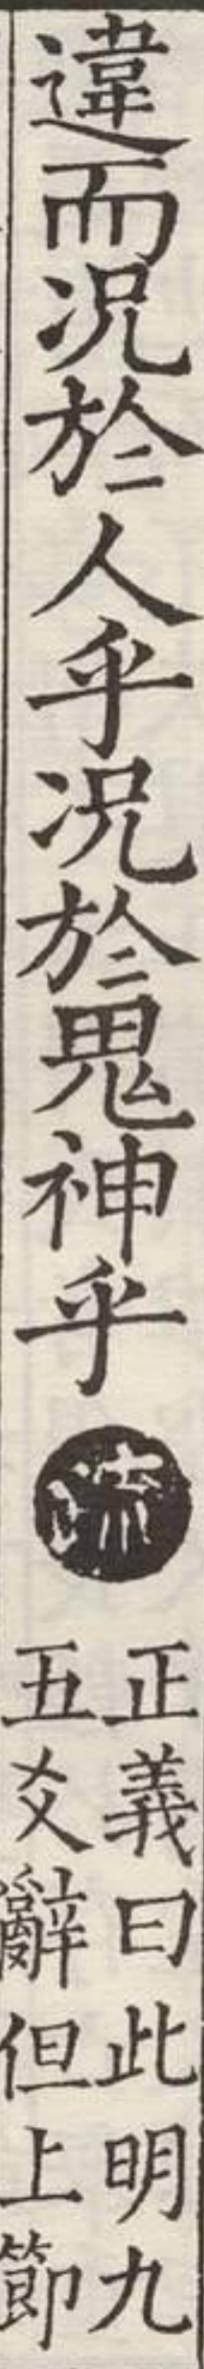 違而况於人乎况於鬼神乎疏
正義曰此明九
五爻辭但上節